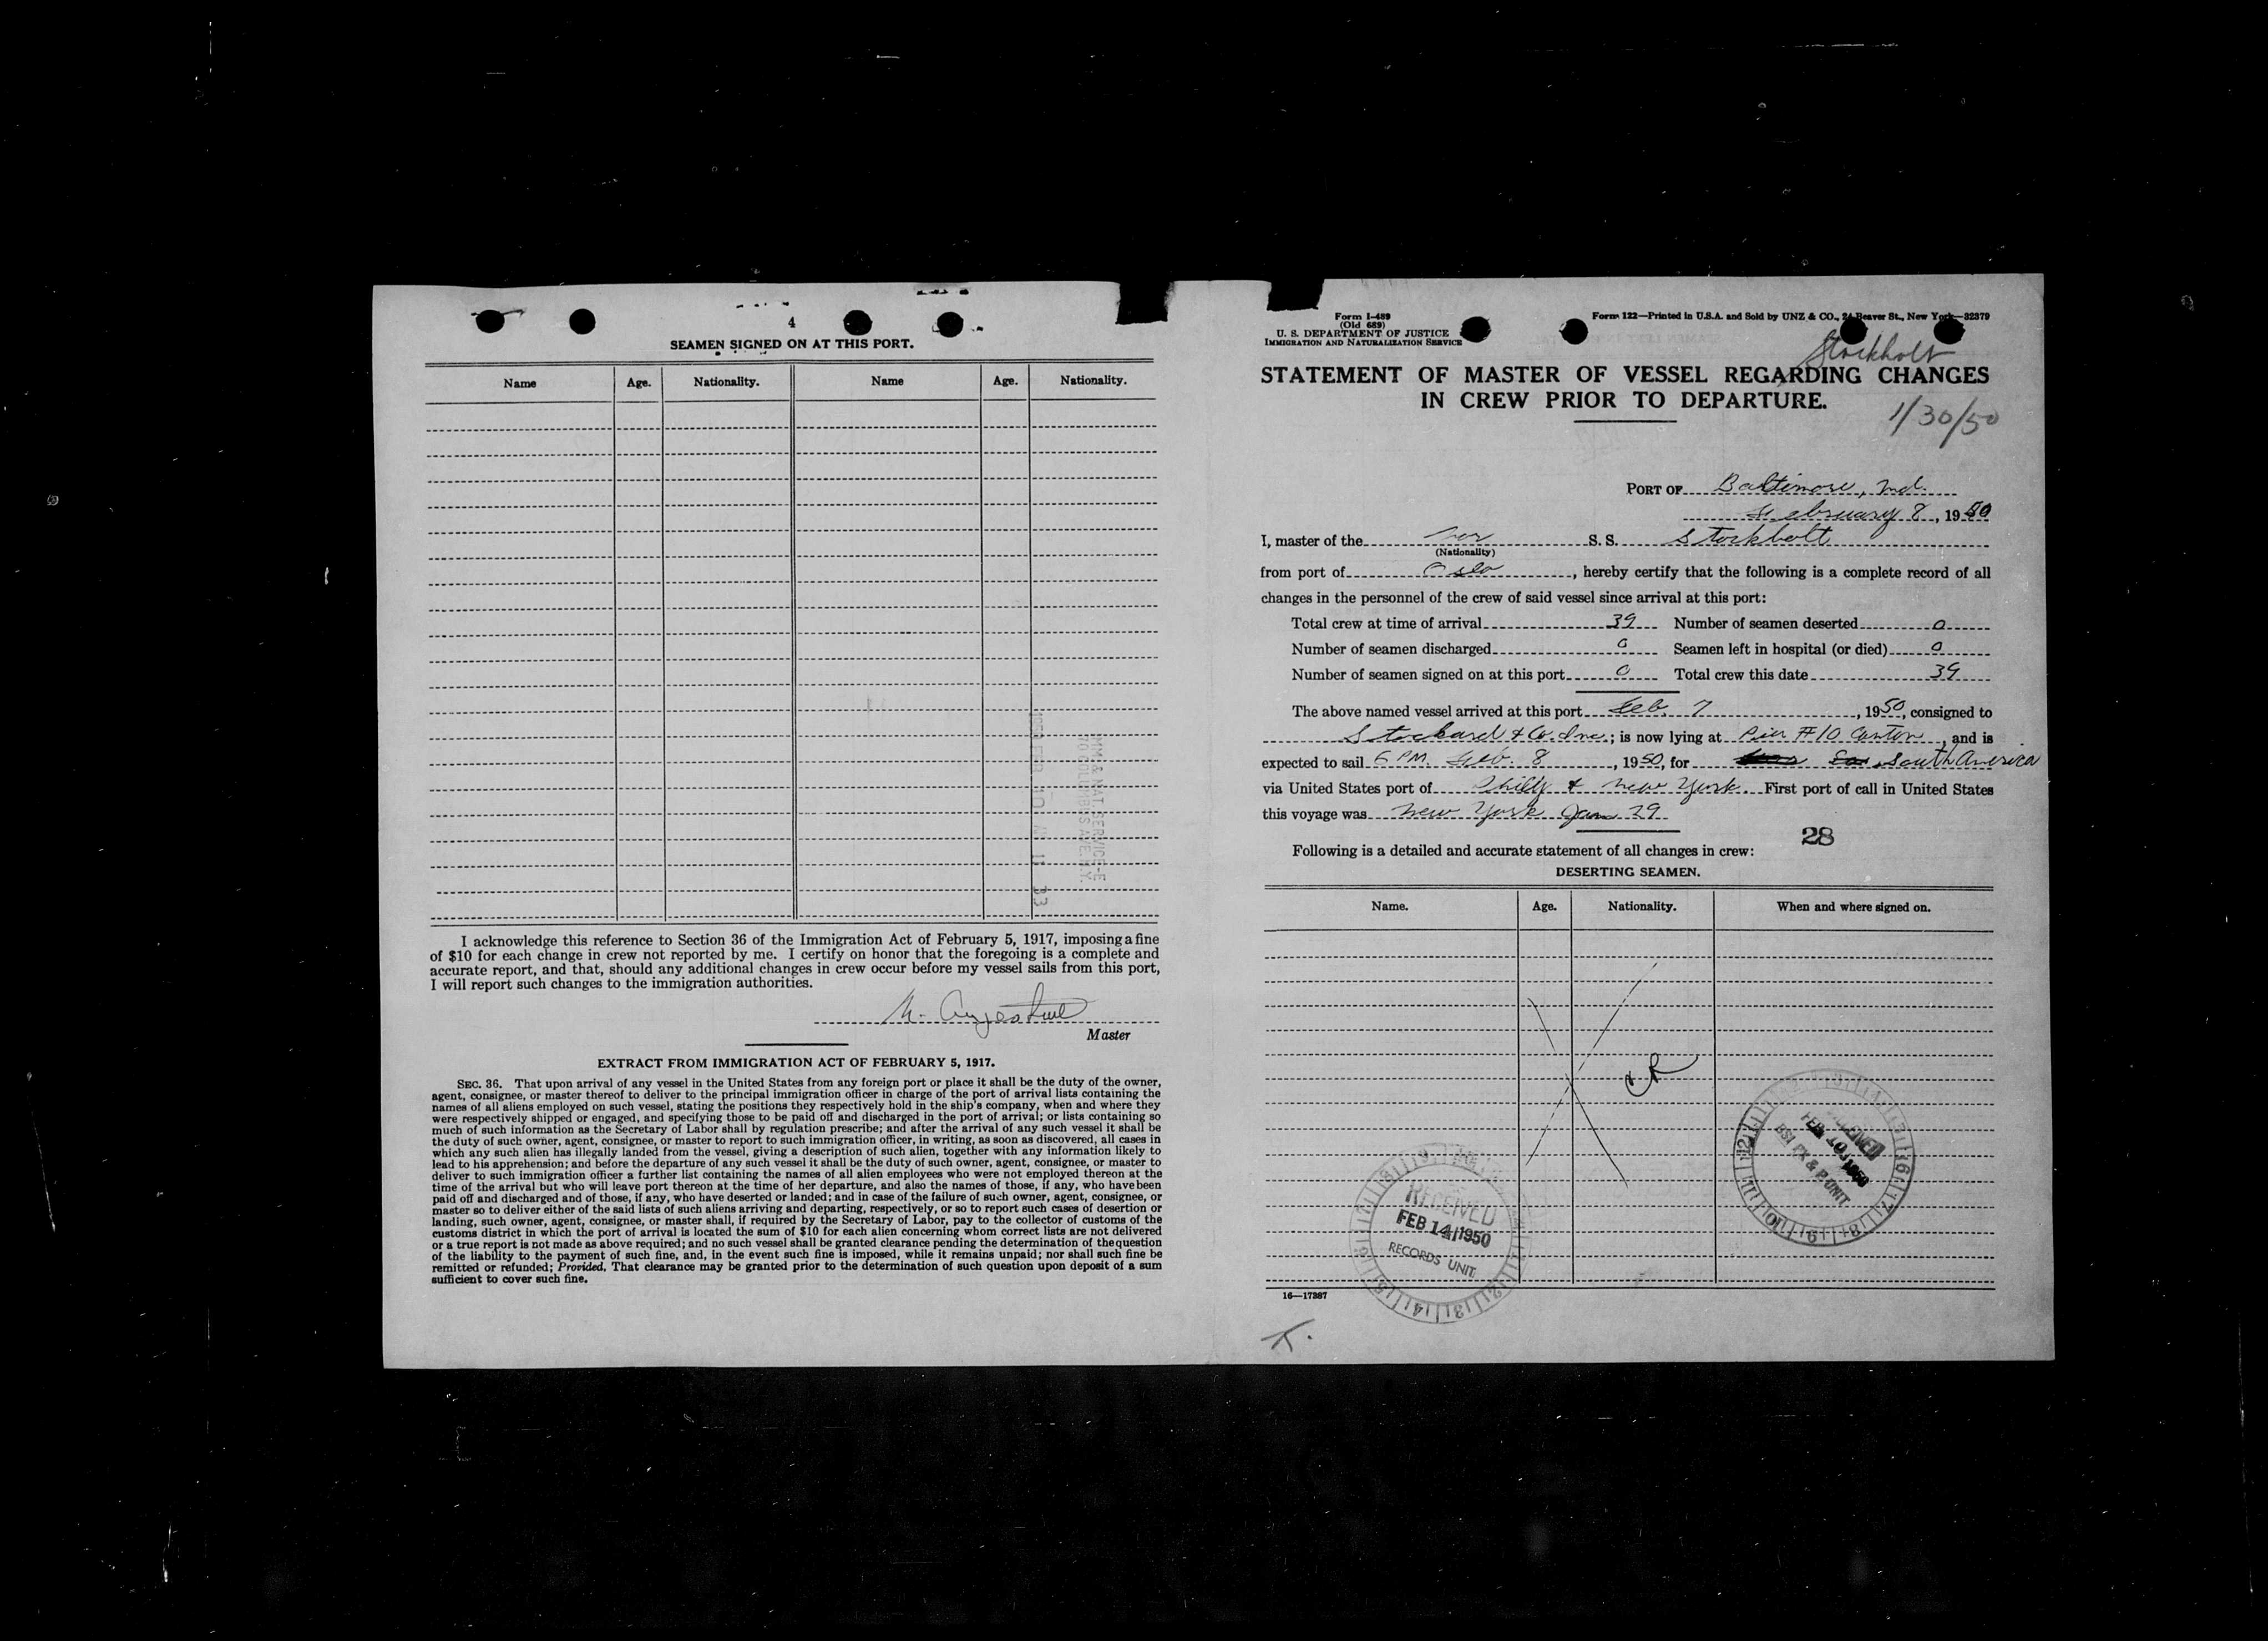 4
SEAMEN SIGNED ON AT THIS PORT.
Name Age. Nationality. Name Age. Nationality.
IMM. & NAT. SERVICE-E
70 COLUMBUS AVE. N.Y.
1950 FEB 10 11 33
I acknowledge this reference to Section 36 of the Immigration Act of February 5, 1917, imposing a fine
of $10 for each change in crew not reported by me. I certify on honor that the foregoing is a complete and
accurate report, and that, should any additional changes in crew occur before my vessel sails from this port,
I will report such changes to the immigration authorities.
Master
EXTRACT FROM IMMIGRATION ACT OF FEBRUARY 5, 1917.
SEC. 36. That upon arrival of any vessel in the United States from any foreign port or place it shall be the duty of the owner,
agent, consignee, or master thereof to deliver to the principal immigration officer in charge of the port of arrival lists containing the
names of all aliens employed on such vessel, stating the positions they respectively hold in the ship's company, when and where they
were respectively shipped or engaged, and specifying those to be paid off and discharged in the port of arrival; or lists containing so
much of such information as the Secretary of Labor shall by regulation prescribe; and after the arrival of any such vessel it shall be
the duty of such owner, agent, consignee, or master to report to such immigration officer, in writing, as soon as discovered, all cases in
which any such alien has illegally landed from the vessel, giving a description of such alien, together with any information likely to
lead to his apprehension; and before the departure of any such vessel it shall be the duty of such owner, agent, consignee, or master to
deliver to such immigration officer a further list containing the names of all alien employees who were not employed thereon at the
time of the arrival but who will leave port thereon at the time of her departure, and also the names of those, if any, who have been
paid off and discharged and of those, if any, who have deserted or landed; and in case of the failure of such owner, agent, consignee, or
master so to deliver either of the said lists of such aliens arriving and departing, respectively, or so to report such cases of desertion or
landing, such owner, agent, consignee, or master shall, if required by the Secretary of Labor, pay to the collector of customs of the
customs district in which the port of arrival is located the sum of $10 for each alien concerning whom correct lists are not delivered
or a true report is not made as above required; and no such vessel shall be granted clearance pending the determination of the question
of the liability to the payment of such fine, and, in the event such fine is imposed, while it remains unpaid; nor shall such fine be
remitted or refunded; Provided, That clearance may be granted prior to the determination of such question upon deposit of a sum
sufficient to cover such fine.
Form I-489
(Old 689)
U. S. DEPARTMENT OF JUSTICE
IMMIGRATION AND NATURALIZATION SERVICE
Form 122—Printed in U.S.A. and Sold by UNZ & CO., 24 Beaver St., New York—32379
Stockholt
STATEMENT OF MASTER OF VESSEL REGARDING CHANGES
IN CREW PRIOR TO DEPARTURE.
1/30/50
PORT OF Baltimore, Md.
February 8, 1950
I, master of the Nor S. S. Stockholt
(Nationality)
from port of Oslo, hereby certify that the following is a complete record of all
changes in the personnel of the crew of said vessel since arrival at this port:
Total crew at time of arrival 39 Number of seamen deserted 0
Number of seamen discharged 0 Seamen left in hospital (or died) 0
Number of seamen signed on at this port 0 Total crew this date 39
The above named vessel arrived at this port Feb. 7, 1950, consigned to
Stockard & Co. Inc.; is now lying at Pier #10 Canton, and is
expected to sail 6 PM. Feb. 8, 1950, for South America
via United States port of Philly & New York. First port of call in United States
this voyage was New York Jan 29
28
Following is a detailed and accurate statement of all changes in crew:
DESERTING SEAMEN.
Name. Age. Nationality. When and where signed on.
RECEIVED
FEB 10 1950
BSI EX & P UNIT
RECEIVED
FEB 14 1950
RECORDS UNIT
16—17387